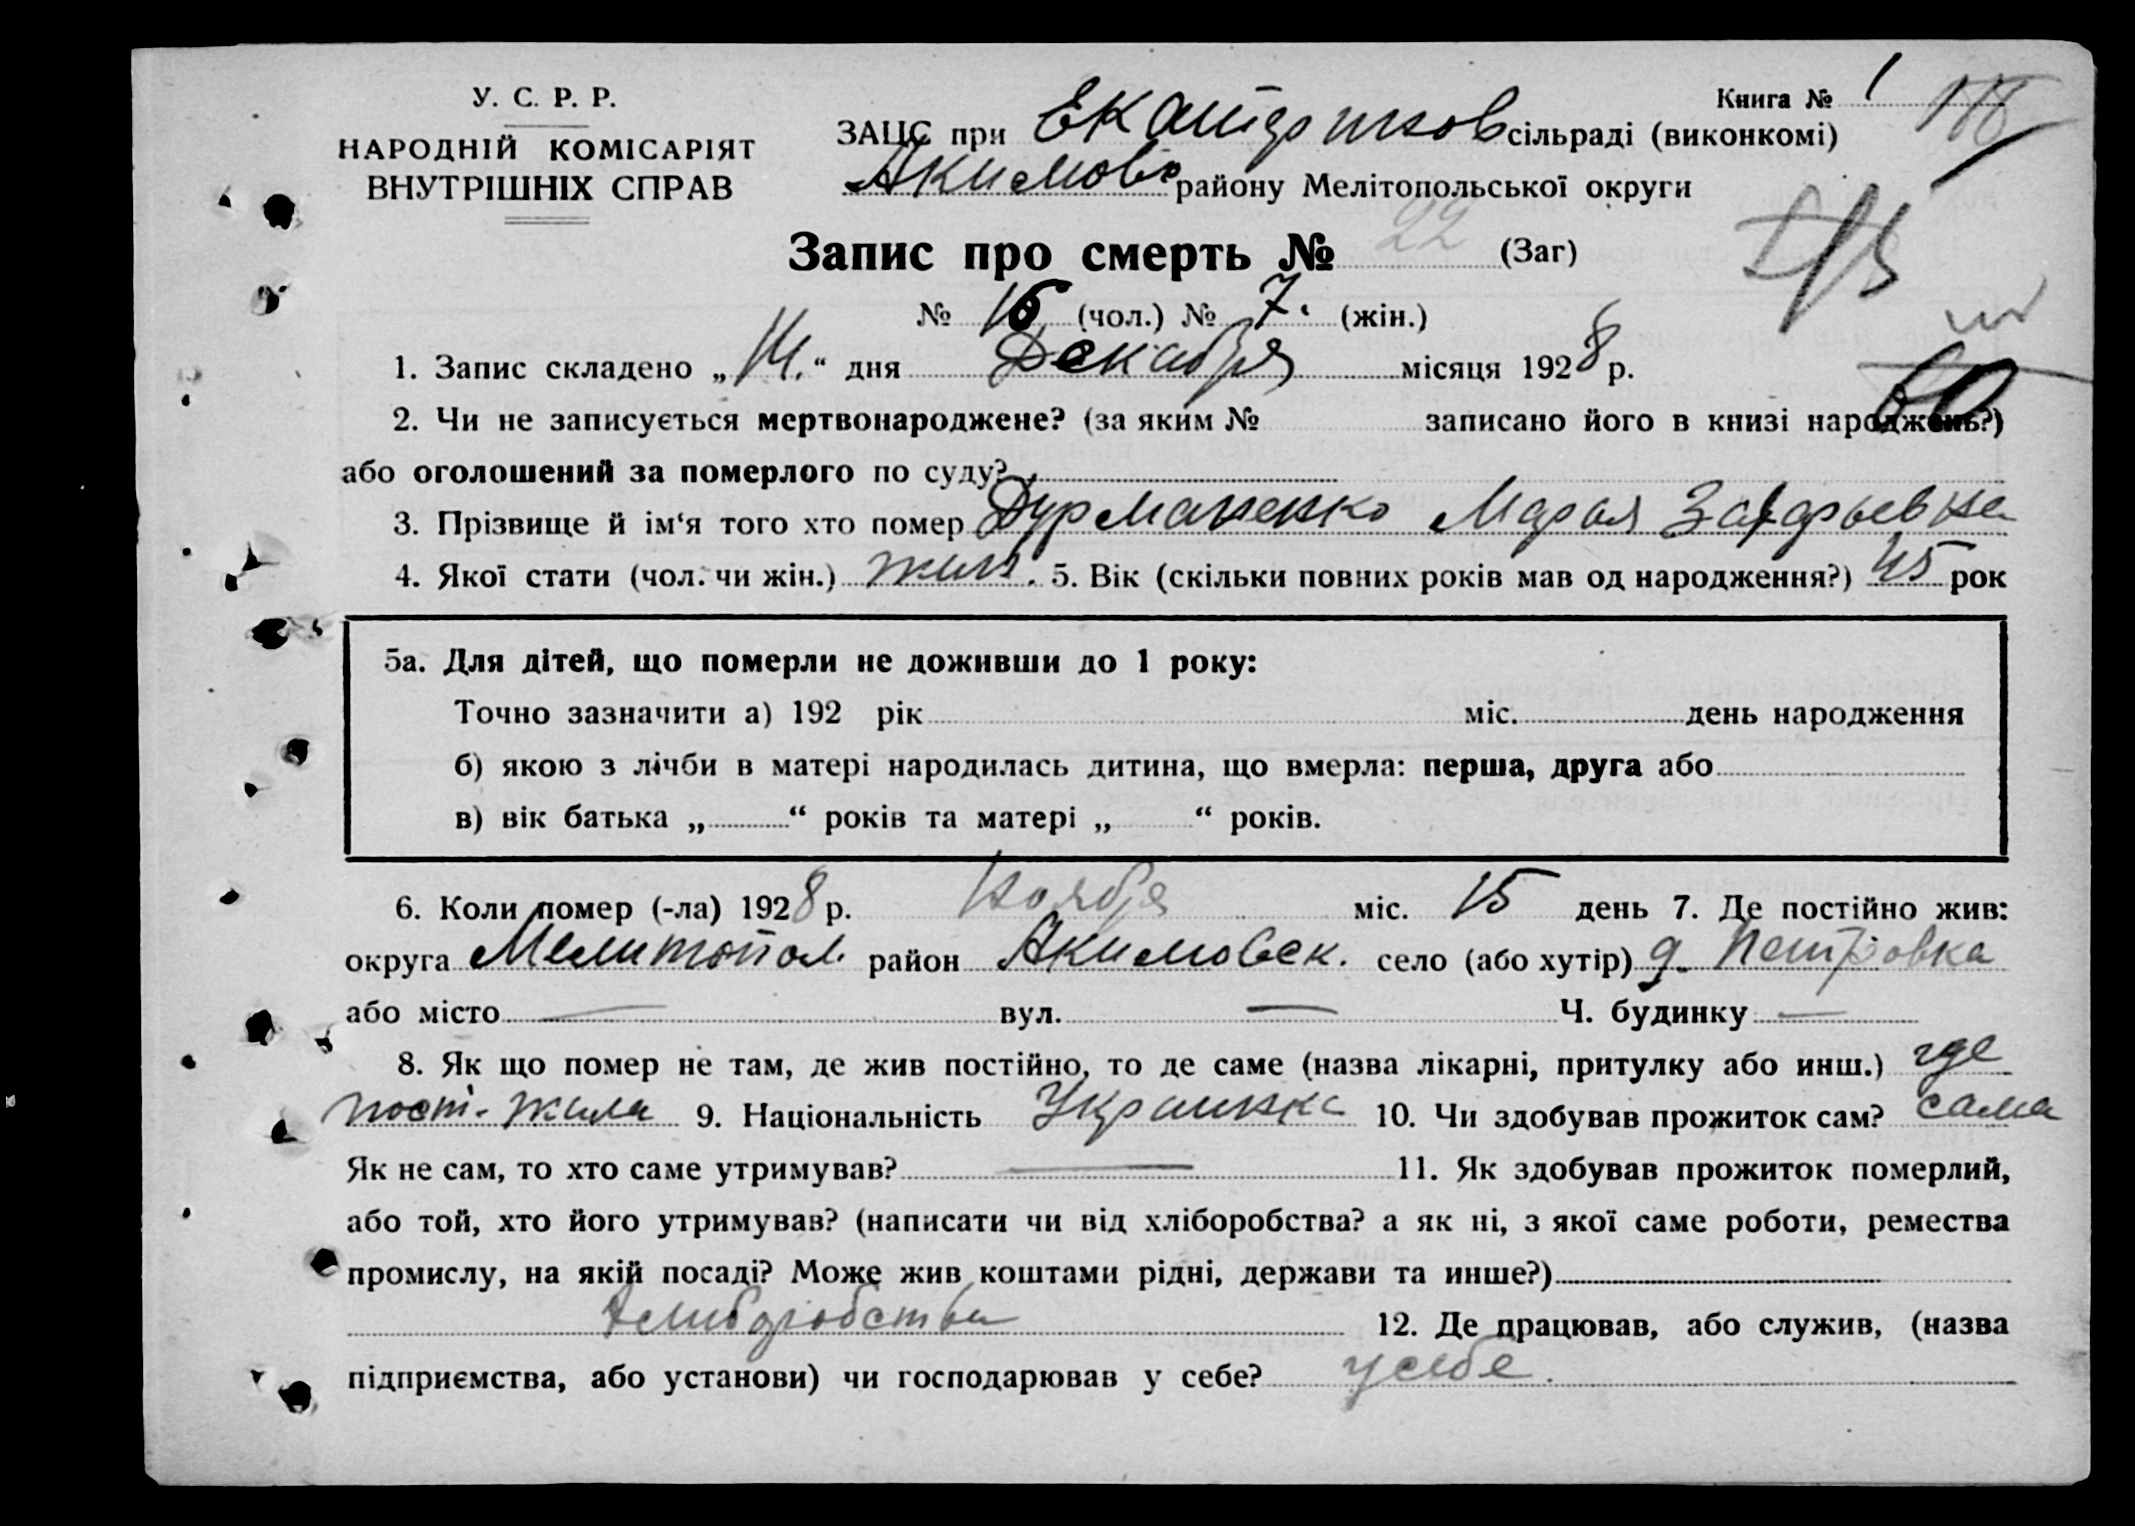 У. С. Р. Р.
НАРОДНІЙ КОМІСАРІЯТ
ВНУТРІШНІХ СПРАВ
Книга № 1
ЗАЦС при сільраді (виконкомі)
Акимовс району Мелітопольської округи
Запис про смерть № 22 (Заг)
№ 16 (чол.) № 7 (жін.)
1. Запис складено „14.“ дня Декабря місяця 1928 р.
2. Чи не записується мертвонароджене? (за яким № записано його в книзі народжень?)
або оголошений за померлого по суду?
3. Прізвище й ім‘я того хто помер Дурманенко Марья Захарьевна
4. Якої стати (чол. чи жін.) жин. 5. Вік (скільки повних років мав од народження?) 45 рок
5а. Для дітей, що померли не доживши до 1 року:
Точно зазначити а) 192 рік міс. день народження
б) якою з лічби в матері народилась дитина, що вмерла: перша, друга або
в) вік батька „ “ років та матері „ “ років.
6. Коли помер (-ла) 1928 р. Ноября міс. 15 день 7. Де постійно жив:
округа Мелитопол. район Акимовск. село (або хутір) д. Петровка
або місто — вул. — Ч. будинку —
8. Як що помер не там, де жив постійно, то де саме (назва лікарні, притулку або инш.) где
пост. жила 9. Національність Украинка 10. Чи здобував прожиток сам? сама
Як не сам, то хто саме утримував? — 11. Як здобував прожиток померлий,
або той, хто його утримував? (написати чи від хліборобства? а як ні, з якої саме роботи, ремества
промислу, на якій посаді? Може жив коштами рідні, держави та инше?)
12. Де працював, або служив, (назва
підприємства, або установи) чи господарював у себе? у себе.